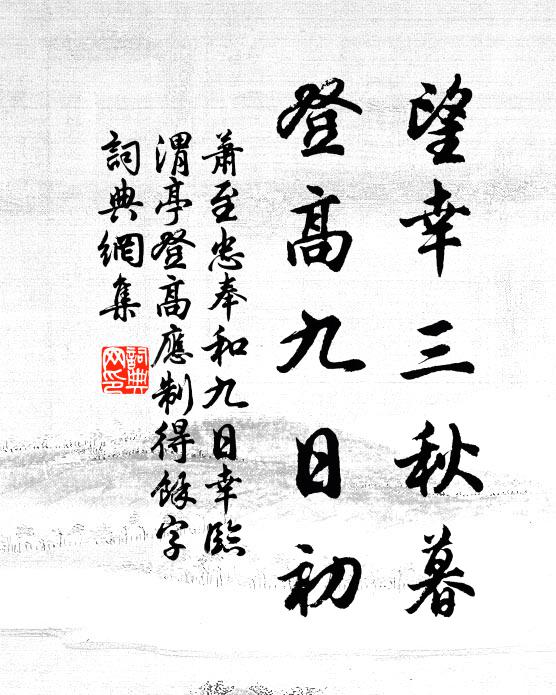 望幸三秋暮
登高九日初
蕭至忠奉和九日幸臨
渭亭登高應制得餘字
詞典網集
詞典
網印